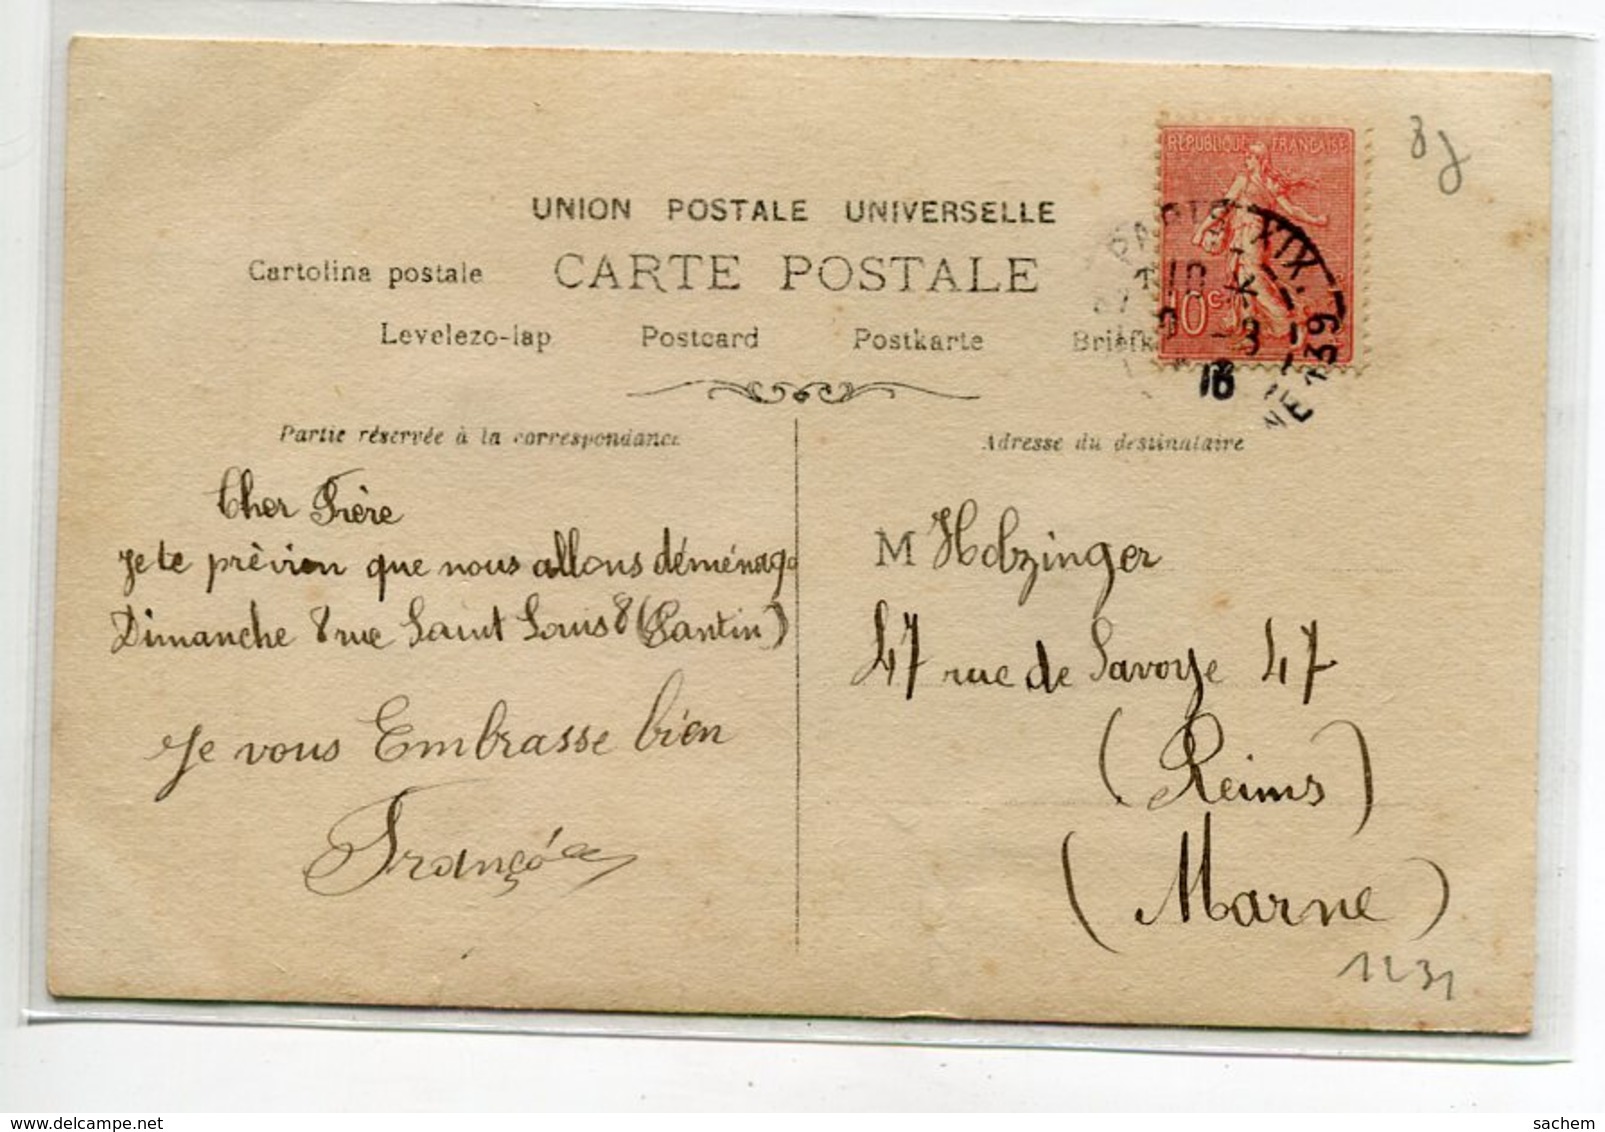 UNION POSTALE UNIVERSELLE
Cartolina postale CARTE POSTALE
Levelezo-lap Postcard Postkarte Briefk
REPUBLIQUE FRANÇAISE
10c
PARIS XIX.
Partie réservée à la correspondance
Adresse du destinataire
Cher Frère
Je te prèvien que nous allons déménag
Dimanche 8 rue Saint Louis 8 (Pantin)
Je vous Embrasse bien
M Holzinger
47 rue de Savoye 47
(Reims)
(Marne)
1231
sachem